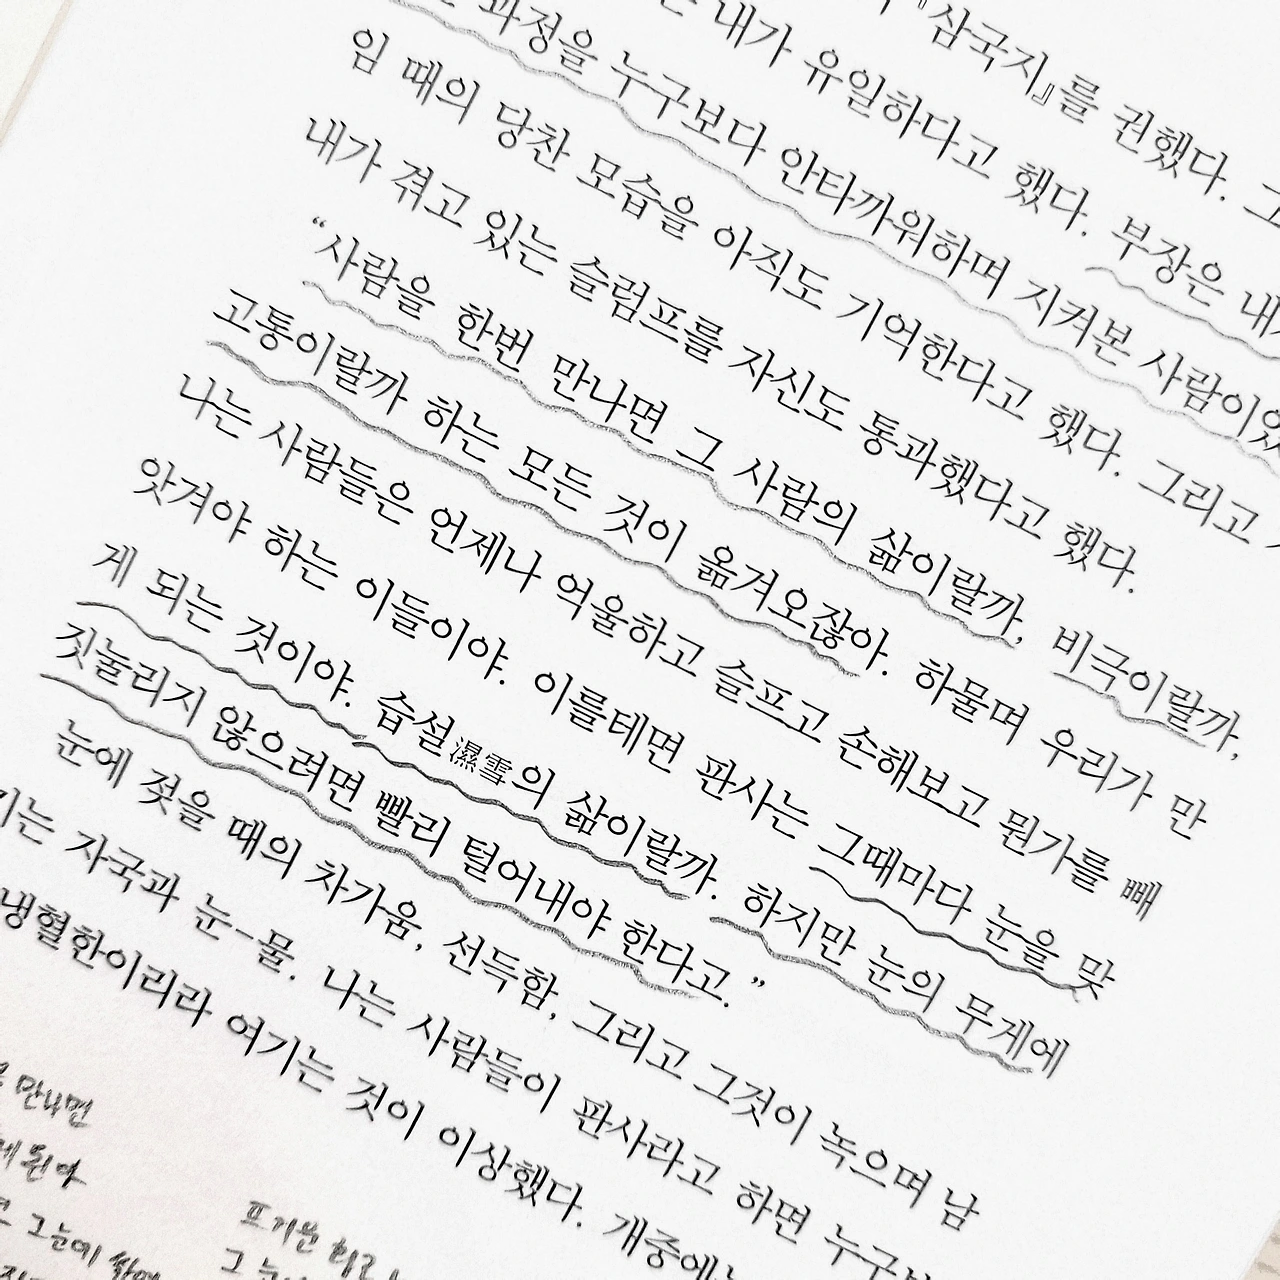 『삼국지』를 권했다.
내가 유일하다고 했다. 부장은
과정을 누구보다 안타까워하며 지켜본
임 때의 당찬 모습을 아직도 기억한다고 했다. 그리고
내가 겪고 있는 슬럼프를 자신도 통과했다고 했다.
“사람을 한번 만나면 그 사람의 삶이랄까, 비극이랄까,
고통이랄까 하는 모든 것이 옮겨오잖아. 하물며 우리가 만
나는 사람들은 언제나 억울하고 슬프고 손해보고 뭔가를 빼
앗겨야 하는 이들이야. 이를테면 판사는 그때마다 눈을 맞
게 되는 것이야. 습설濕雪의 삶이랄까. 하지만 눈의 무게에
짓눌리지 않으려면 빨리 털어내야 한다고.”
눈에 젖을 때의 차가움, 선득함, 그리고 그것이 녹으며 남
기는 자국과 눈-물. 나는 사람들이 판사라고 하면
냉혈한이리라 여기는 것이 이상했다.
만나면
된다
그 눈에